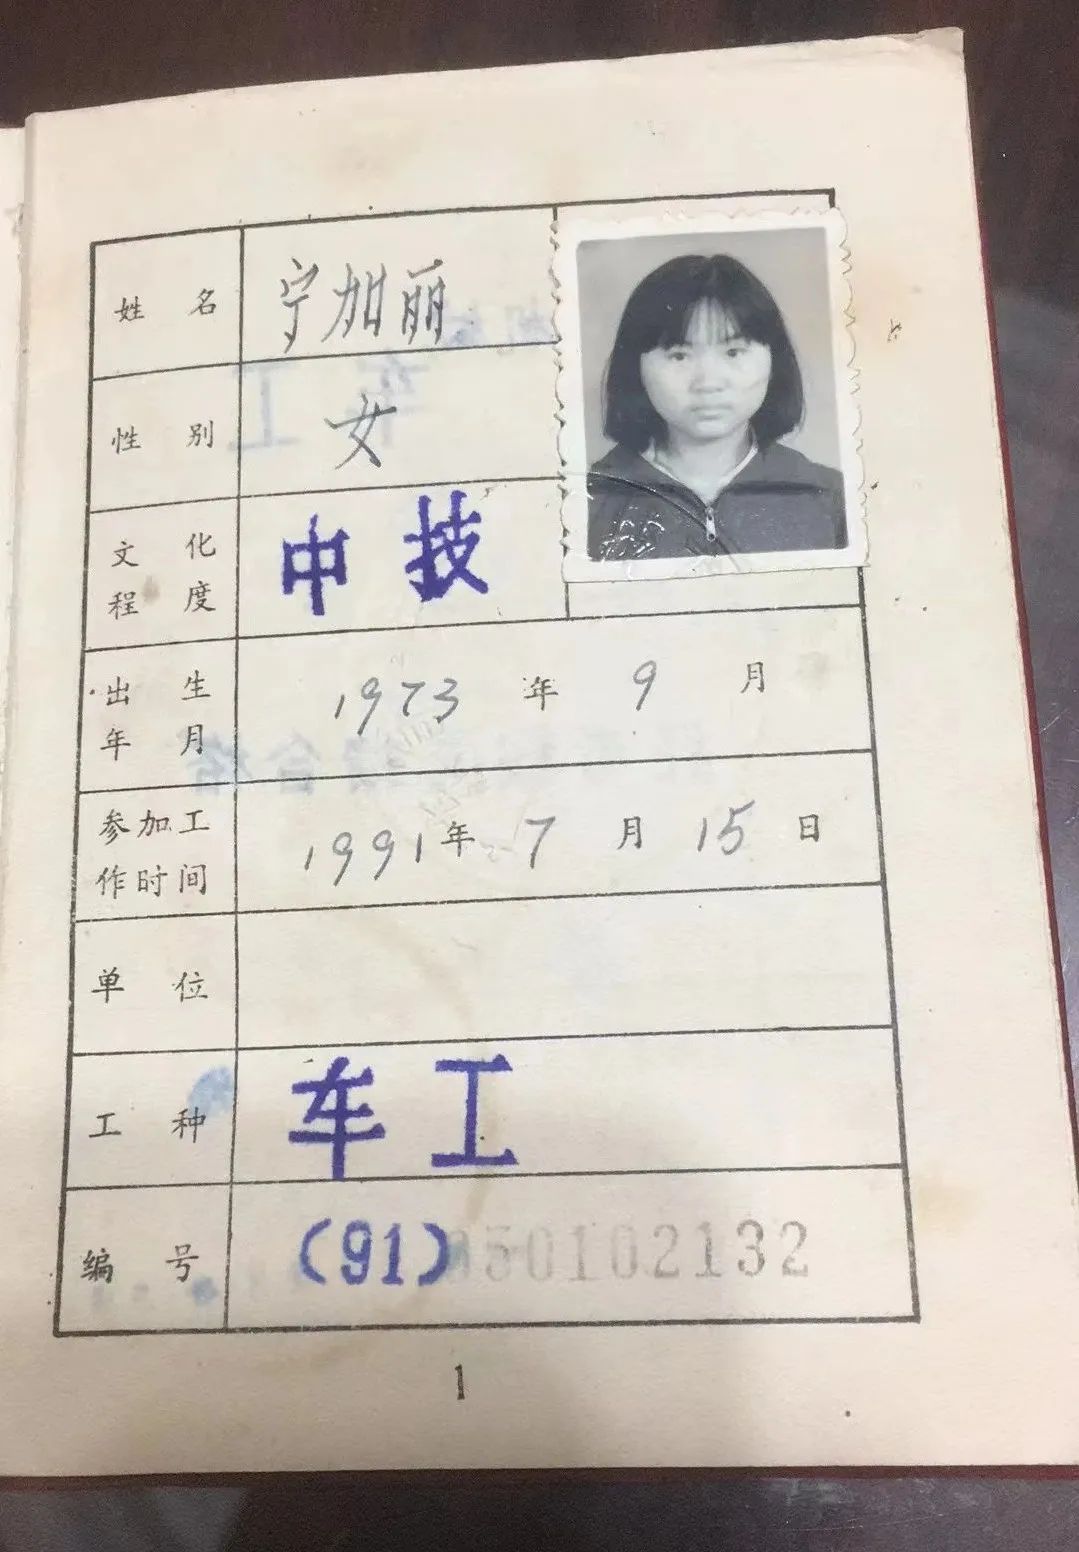 姓名 宁加丽
性别 女
文化程度 中技
出生年月 1973年9月
参加工作时间 1991年7月15日
单位
工种 车工
编号 (91)850102132
1